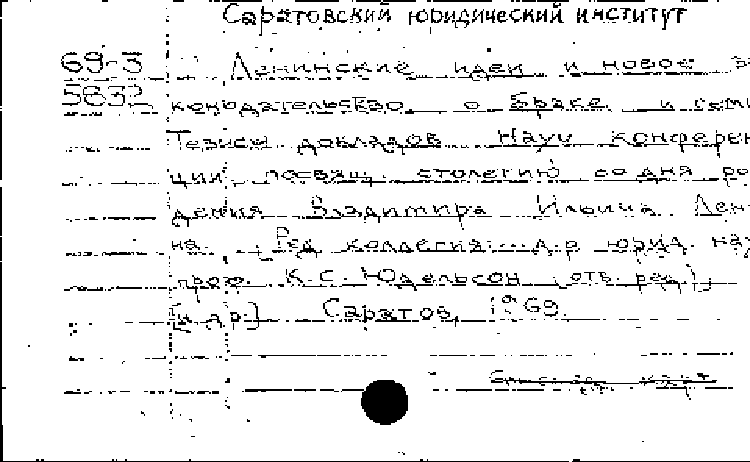 Саратовский юридический институт
69-3 Ленинские идеи и новое за
5832 конодательство о браке и семь
Тезисы докладов науч конферен
ции, посвящ. столетию со дня ро
дения Владимира Ильича Лен
на. Ред коллегия: д-р юрид. нау
проф. К.С. Юдельсон (отв. ред.)
[и др.] Саратов, 1969.